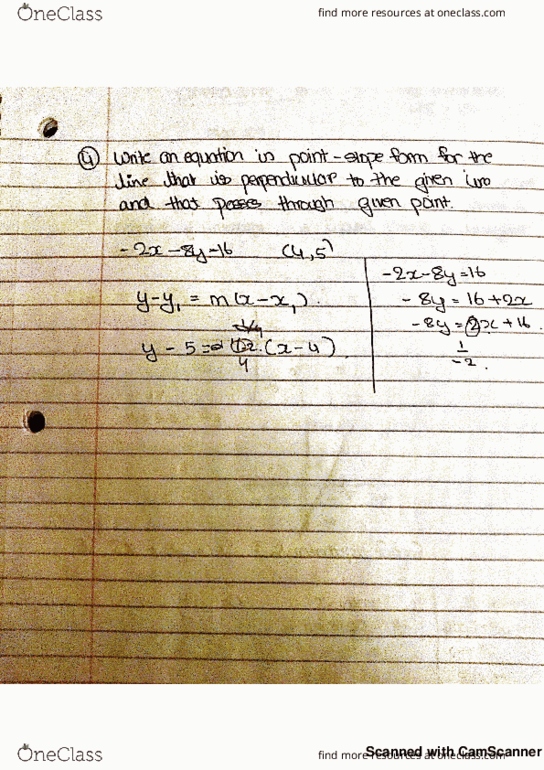 OneClass
find more resources at oneclass.com
④ Write an equation in point-slope form for the
line that is perpendicular to the given line
and that passes through given point.
-2x-8y=16 (4,5)
y-y₁ = m(x-x₁).
y - 5 = (x-4)
-2x-8y=16
-8y = 16+2x
-8y = 2x+16
1
-2.
OneClass
find more resources at oneclass.com
Scanned with CamScanner